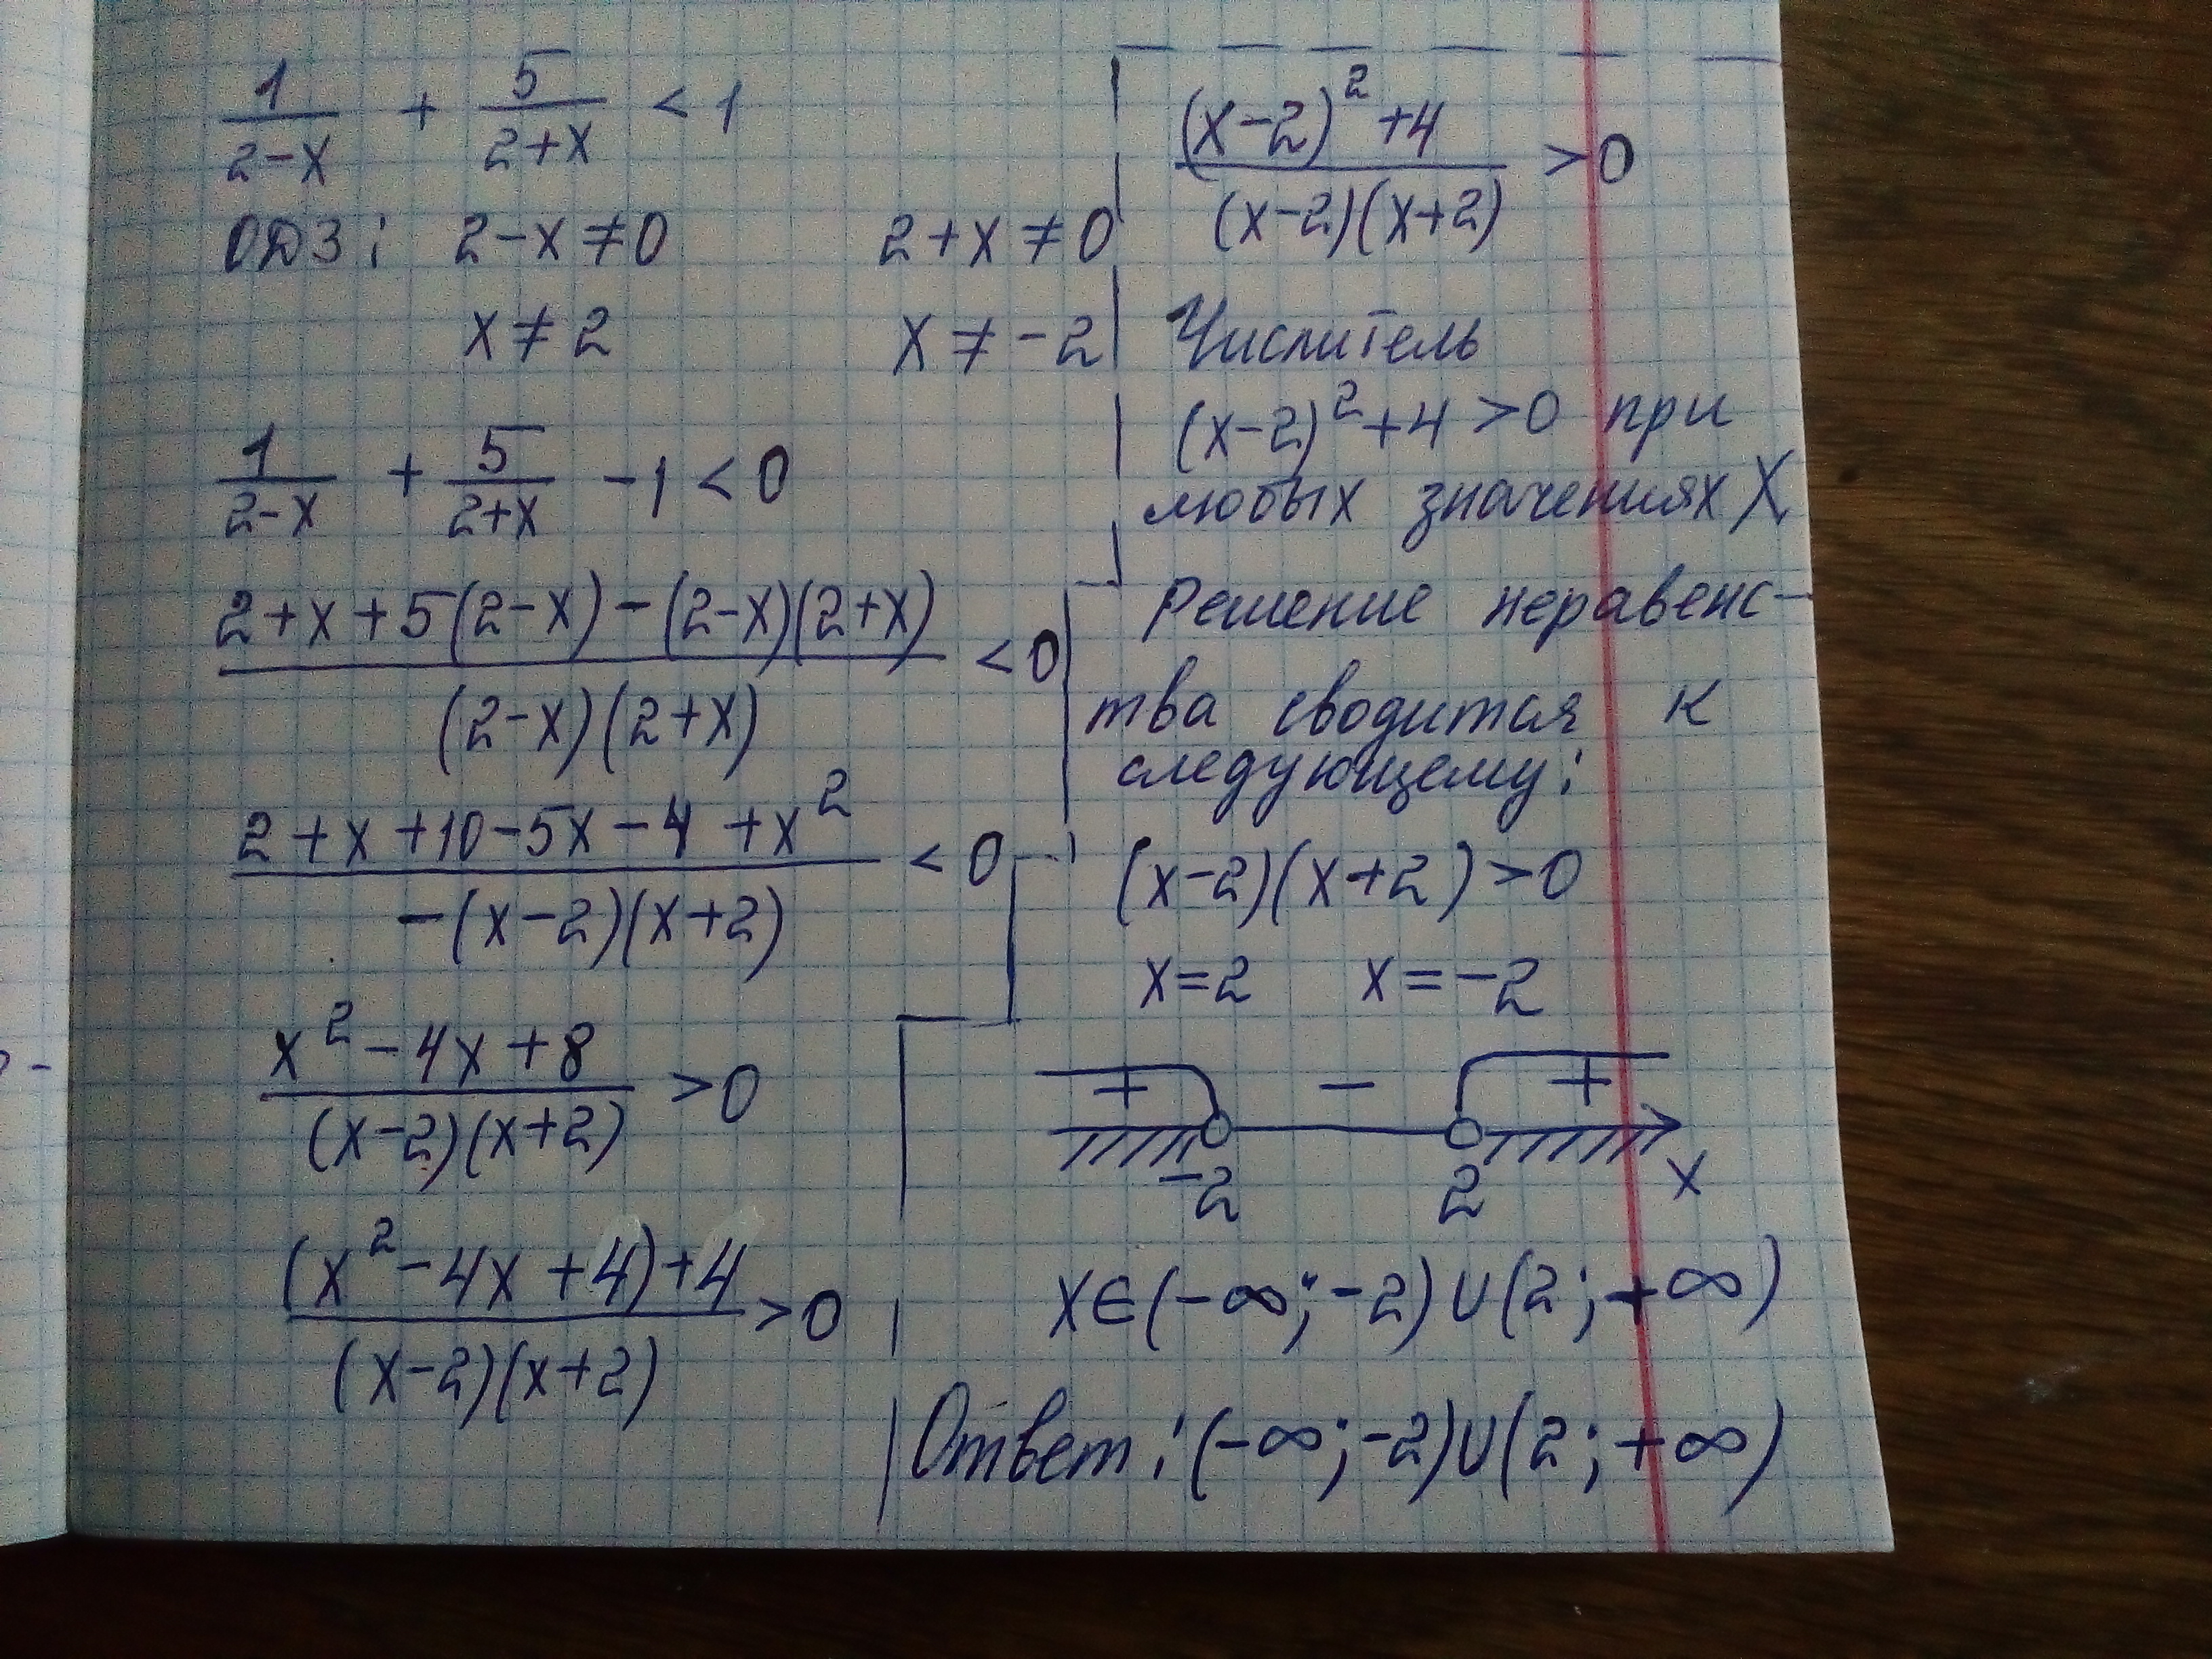 1/(2-x) + 5/(2+x) < 1
ОДЗ: 2-x ≠ 0 2+x ≠ 0
x ≠ 2 x ≠ -2
1/(2-x) + 5/(2+x) - 1 < 0
(2+x+5(2-x)-(2-x)(2+x))/((2-x)(2+x)) < 0
(2+x+10-5x-4+x²)/(-(x-2)(x+2)) < 0
(x²-4x+8)/((x-2)(x+2)) > 0
((x²-4x+4)+4)/((x-2)(x+2)) > 0
((x-2)²+4)/((x-2)(x+2)) > 0
Числитель
(x-2)²+4 > 0 при
любых значениях X
Решение неравенс-
тва сводится к
следующему:
(x-2)(x+2) > 0
x=2 x=-2
+ - +
-2 2 x
x∈(-∞;-2)∪(2;+∞)
Ответ: (-∞;-2)∪(2;+∞)